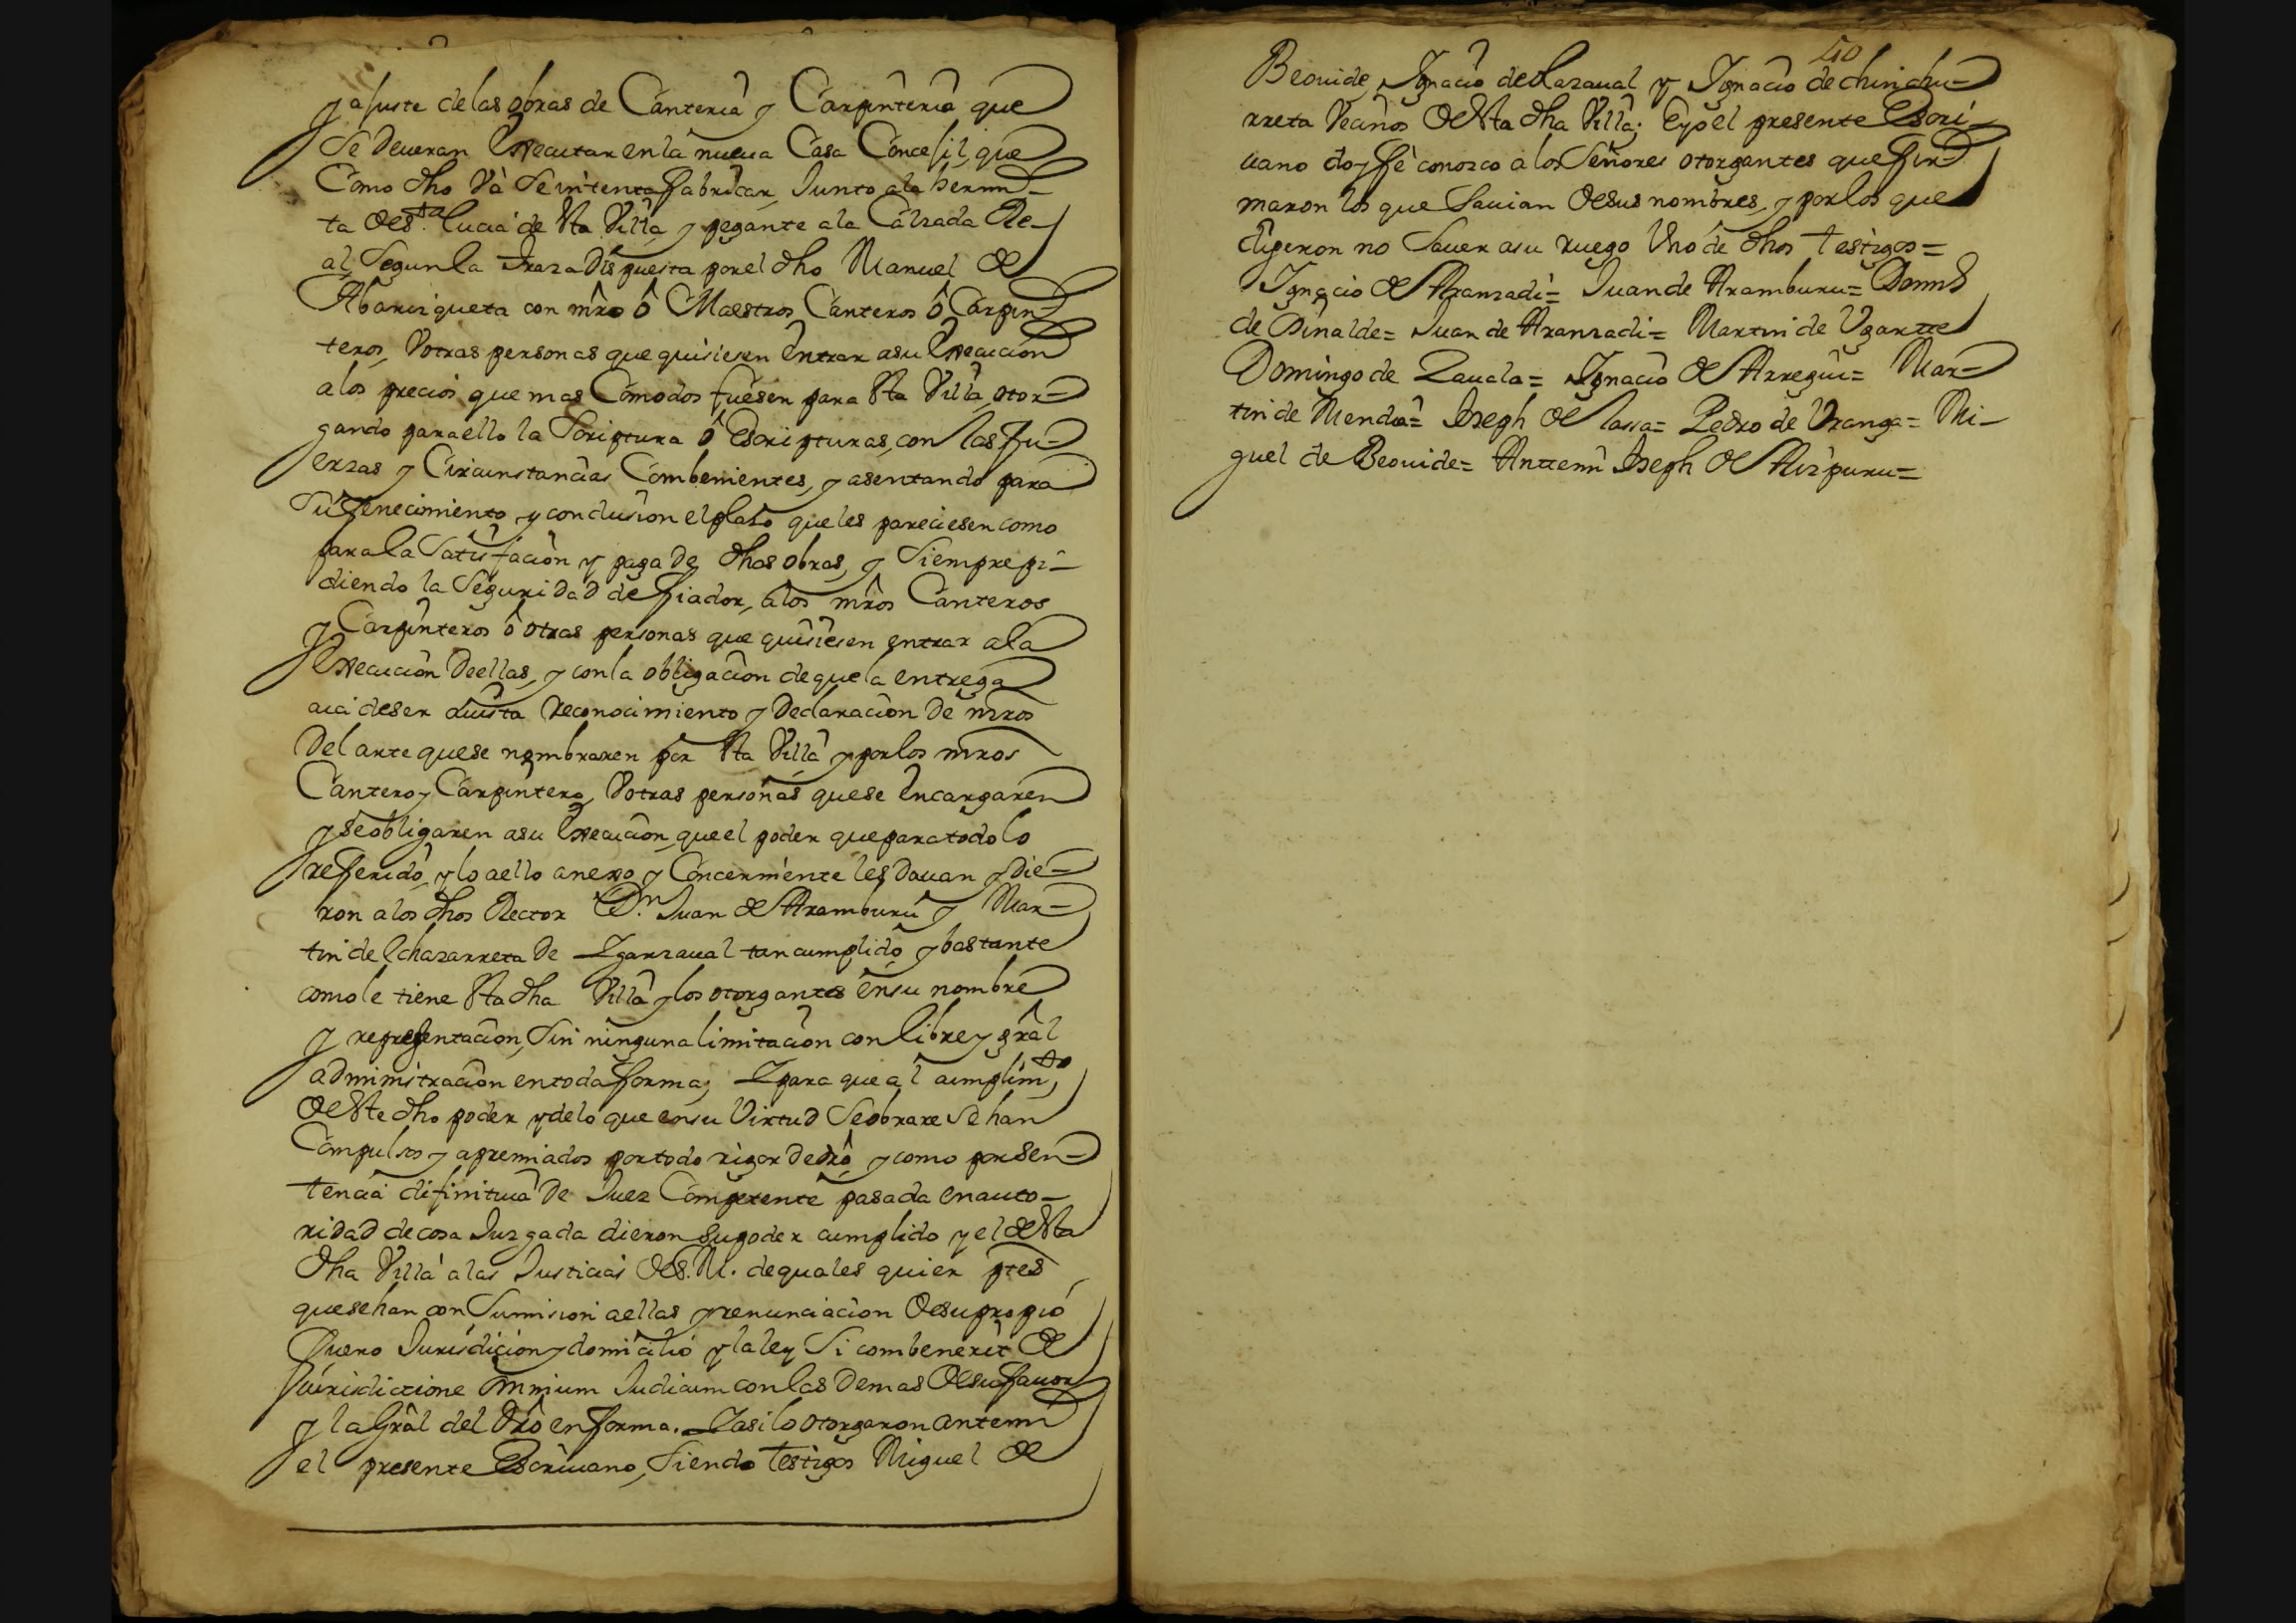 y ajuste de las obras de Canteria y Carpinteria que
Se Deueran Executar en la nueua Casa Concejil, que
Como dho Và Se intenta fabricar, Junto ala hermi-
ta de S.ta Lucia de Sta Villa, y pegante ala Calzada Re-
al, Segun la traza Dispuesta por el dho Manuel de
Abarizqueta con mro ô Maestros Canteros ô Carpin-
teros, Votras personas que quisiesen Entrar asu Execucion
alos precios que mas Comodos fuesen para Sta Villa, otor-
gando para ello la Scriptura ô Escripturas, con las fu-
erzas y Circunstancias Combenientes, y asentando para
Su fenecimiento, y conclusion el plaso que les pareciesen como
para la Satisfacion y paga de dhas obras, y Siempre pi-
diendo la Seguridad de fiador, alos mros Canteros
y Carpinteros ô otras personas que quisiesen entrar ala
Execucion De ellas, y con la obligacion de que la entrega
aia de ser a vista Reconocimiento y Declaracion De mros
Del arte que se nombraren por Sta Villa y por los mros
Cantero y Carpintero, Votras personas que se Encargaren
y Se obligaren asu Execucion, que el poder que para todo lo
referido, y lo aello anexo y Concerniente les Dauan y Die-
ron alos dhos Rector D.n Juan de Aramburu y Mar-
tin de Echazarreta De Ygarzaual tan cumplido y bastante
como le tiene Sta dha Villa y los otorgantes en su nombre
y representacion, Sin ninguna limitacion con libre y gral
administracion en toda forma; Y para que al cumplim.to
de Ste dho poder y de lo que en su Virtud Se obrare Se han
Compulsos y apremiados por todo rigor de dro, y como por Sen-
tencia difinitiua De Juez Competente pasada en auto-
ridad de cosa Juzgada dieron Su poder cumplido y el de Sta
dha Villa alas Justicias de S. M. de quales quier ptes
que se han con Sumision aellas y renunciacion de su propio
fuero Jurisdicion y domicilio y la ley Si combenerit de
Jurisdictione omnium Judicum con las Demas de su fauor
y la Gral del Dro en forma. Y asi lo otorgaron ante mi
el presente Escriuano, Siendo Testigos Miguel de
40
Beouide, Ygnacio de Olazaual y Ygnacio de chinchu-
rreta Vecinos de Sta dha Villa; E yo el presente Escri-
uano doy fè conozco a los Señores otorgantes que fir-
maron los que Sauian de sus nombres, y por los que
digeron no Sauer asu ruego Vno de dhos Testigos=
Ygnacio de Aranzadi= Juan de Aramburu= Domi.º
de Dinalde= Juan de Aranzadi= Martin de Vgartte
Domingo de Zauala= Ygnacio de Arregui= Mar-
tin de Mendia= Joseph de Lassa= Pedro de Vranga= Mi-
guel de Beouide= Antemi Joseph de Aizpuru=